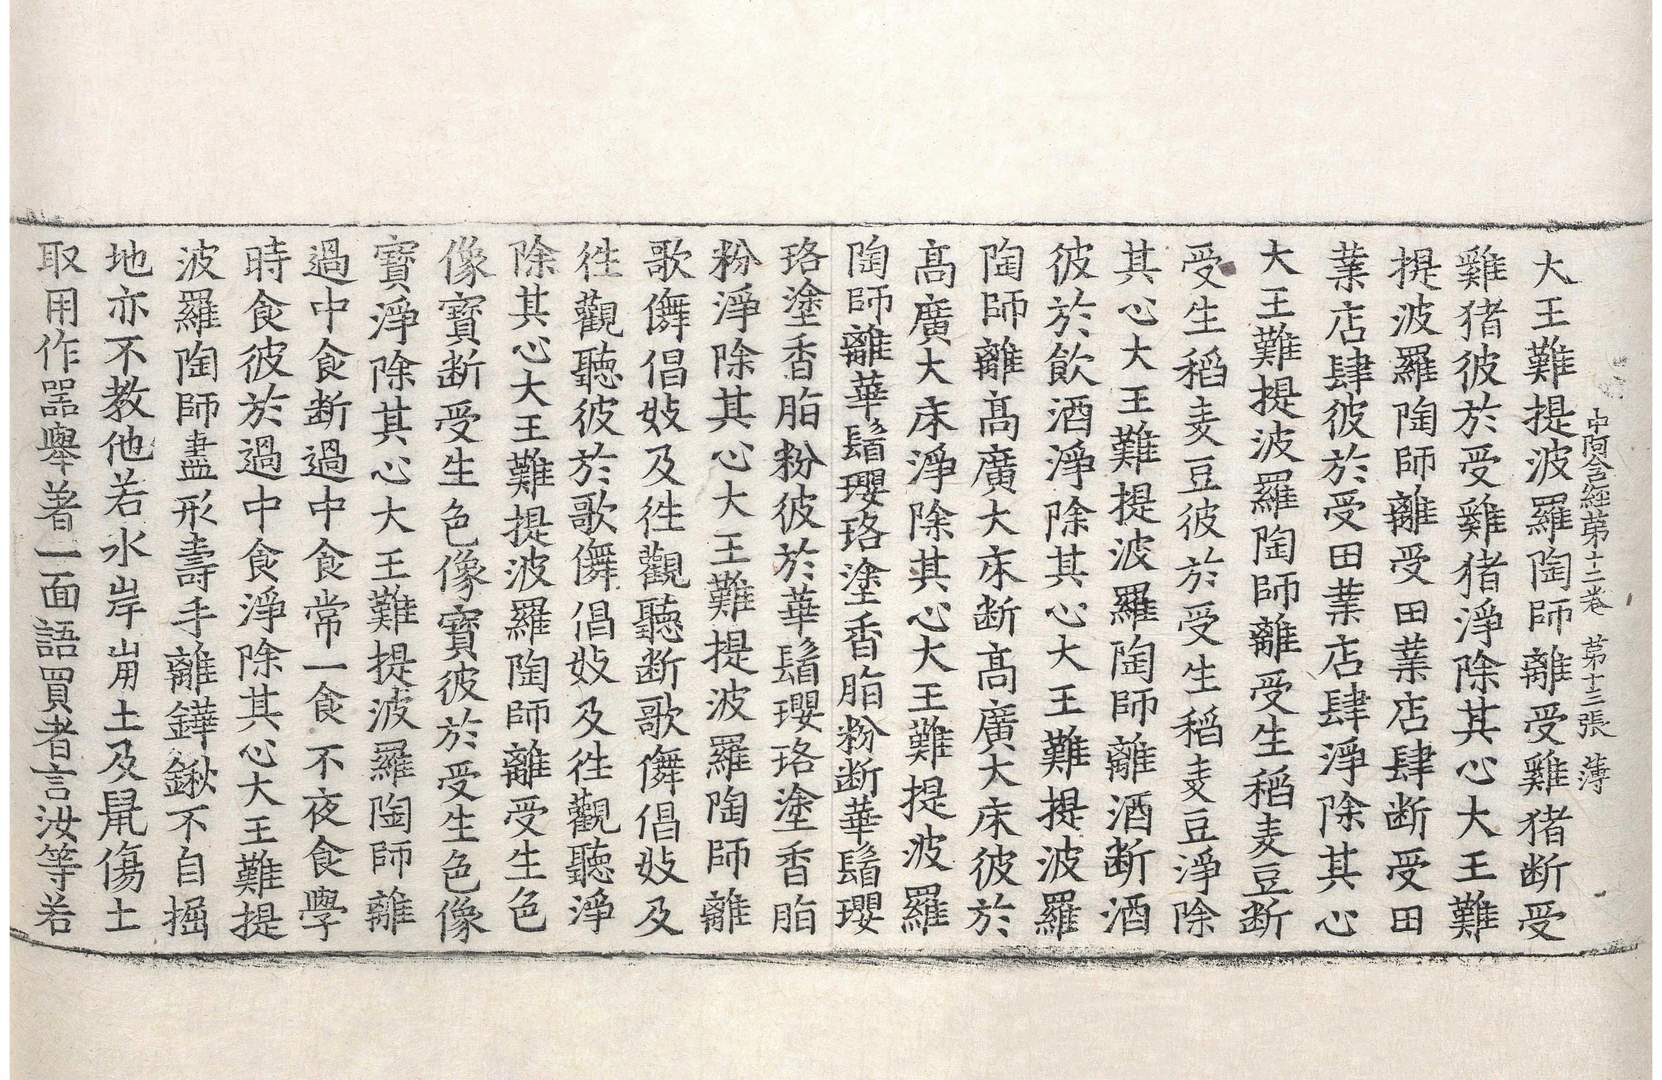 中阿含經第十二卷 第十三張 薄
大王難提波羅陶師離受雞猪断受
雞猪彼於受雞猪淨除其心大王難
提波羅陶師離受田業店肆断受田
業店肆彼於受田業店肆淨除其心
大王難提波羅陶師離受生稻麦豆断
受生稻麦豆彼於受生稻麦豆淨除
其心大王難提波羅陶師離酒断酒
彼於飲酒淨除其心大王難提波羅
陶師離髙廣大床断髙廣大床彼於
髙廣大床淨除其心大王難提波羅
陶師離華鬘瓔珞塗香脂粉断華鬘瓔
珞塗香脂粉彼於華鬘瓔珞塗香脂
粉淨除其心大王難提波羅陶師離
歌儛倡妓及往觀聽断歌儛倡妓及
往觀聽彼於歌儛倡妓及往觀聽淨
除其心大王難提波羅陶師離受生色
像寶断受生色像寶彼於受生色像
寶淨除其心大王難提波羅陶師離
過中食断過中食常一食不夜食學
時食彼於過中食淨除其心大王難提
波羅陶師盡形壽手離鏵鍬不自掘
地亦不教他若水岸崩土及鼠傷土
取用作器舉著一面語買者言汝等若